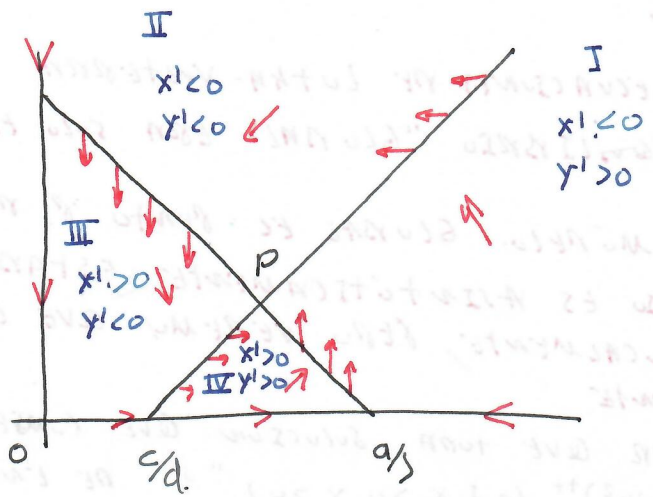 II
x'<0
y'<0
I
x'<0
y'>0
III
x'>0
y'<0
P
x'>0
IV y'>0
0
c/d.